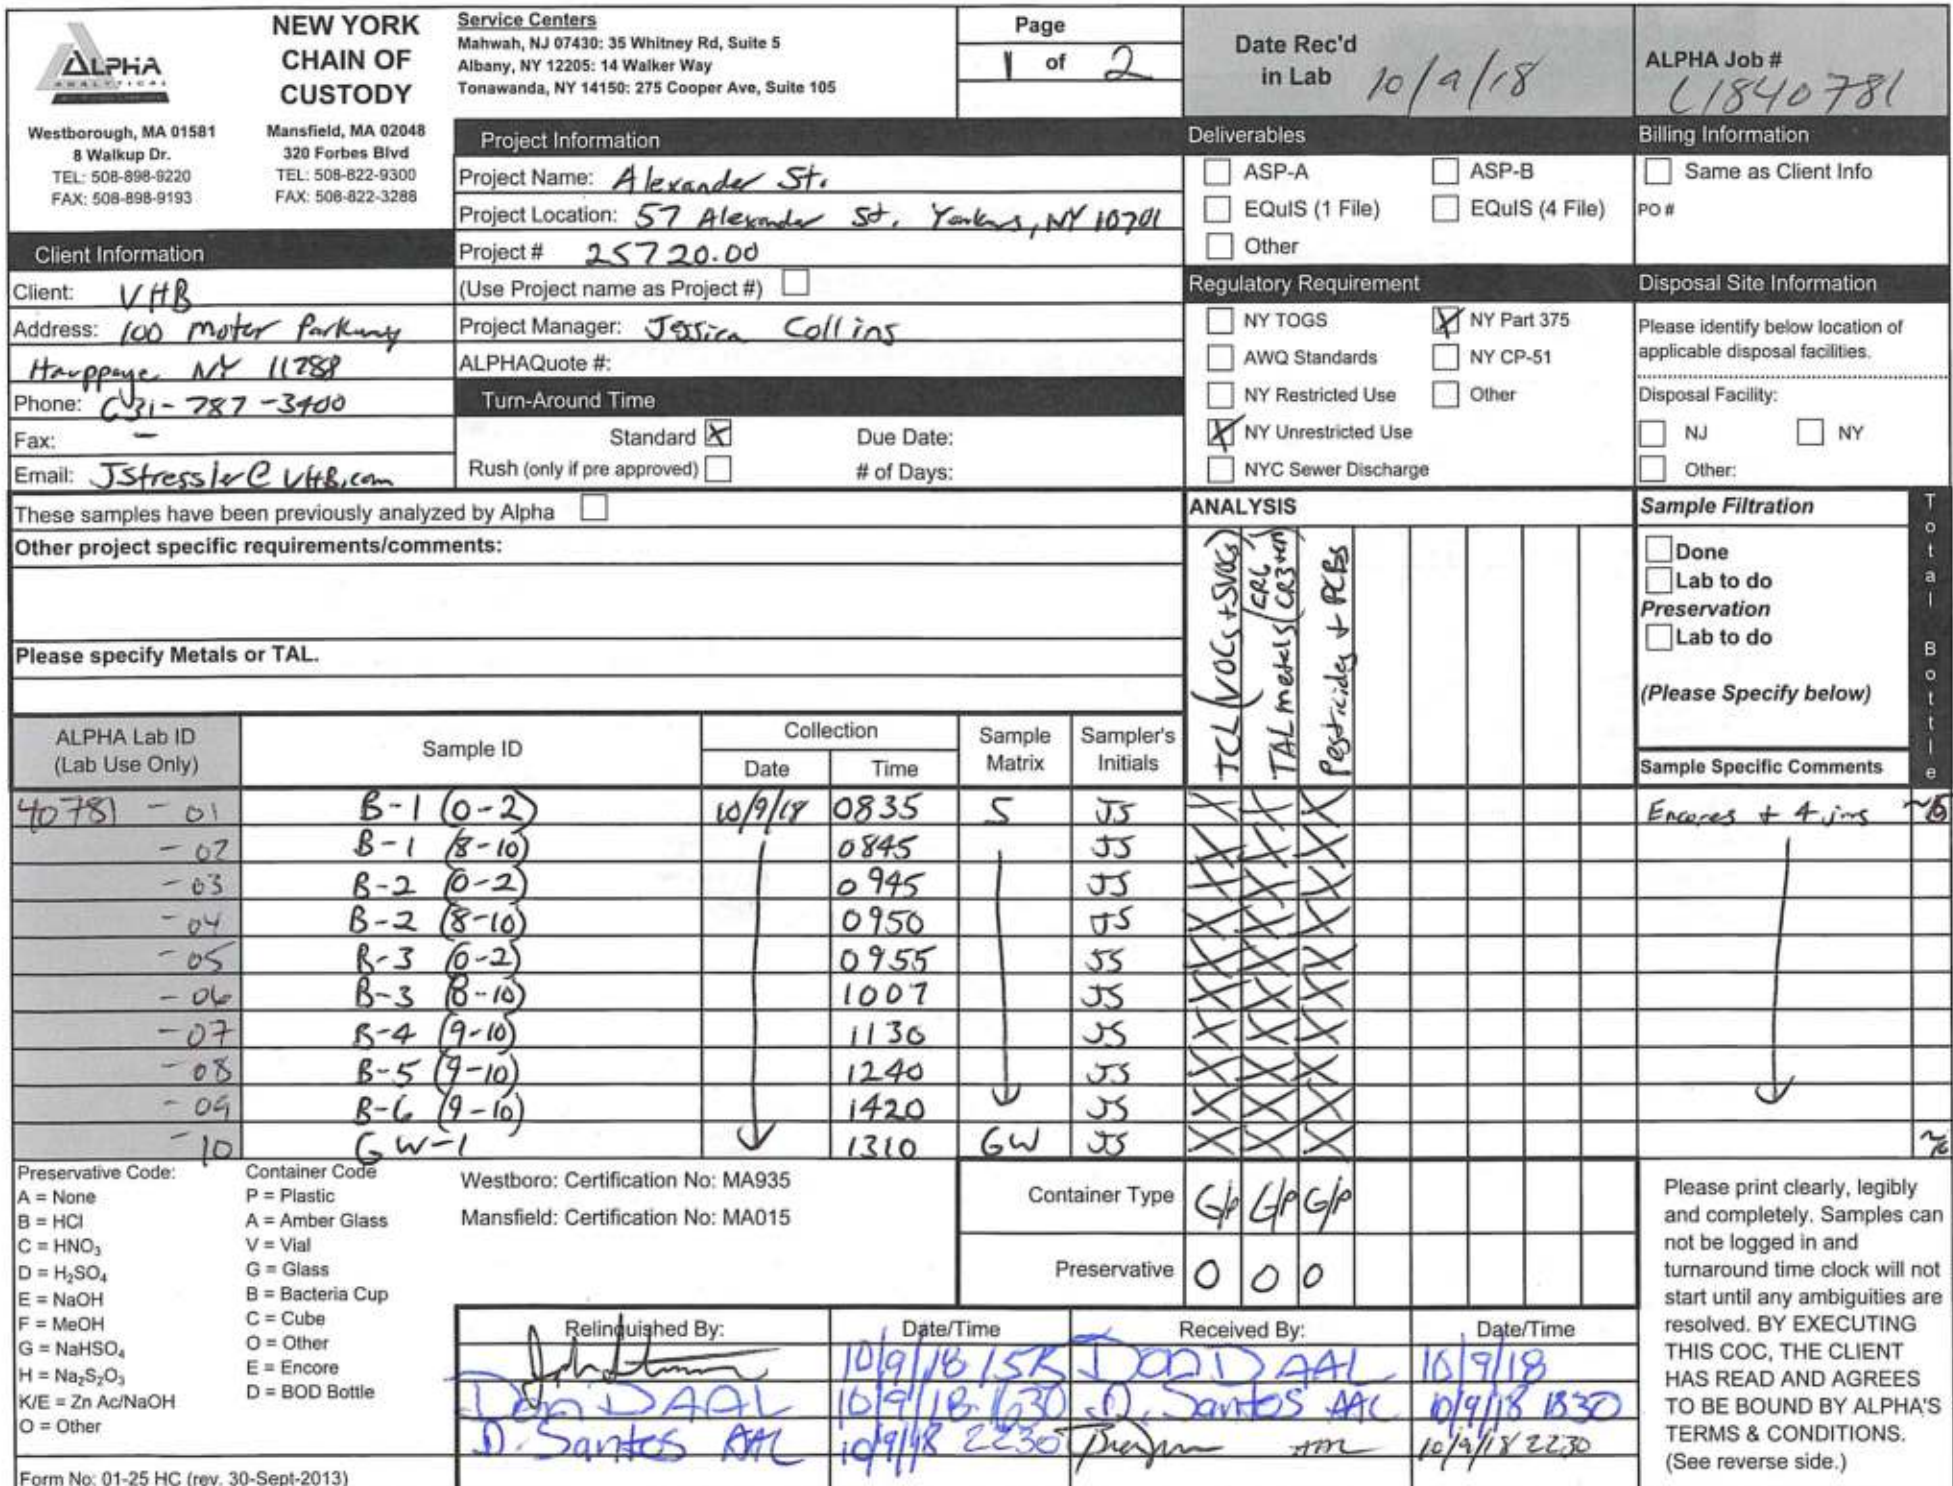 ALPHA
ANALYTICAL
NEW YORK
CHAIN OF
CUSTODY
Westborough, MA 01581
8 Walkup Dr.
TEL: 508-898-9220
FAX: 508-898-9193
Mansfield, MA 02048
320 Forbes Blvd
TEL: 508-822-9300
FAX: 508-822-3288
Service Centers
Mahwah, NJ 07430: 35 Whitney Rd, Suite 5
Albany, NY 12205: 14 Walker Way
Tonawanda, NY 14150: 275 Cooper Ave, Suite 105
Page
1 of 2
Date Rec'd
in Lab 10/9/18
ALPHA Job #
L1840781
Client Information
Client: VHB
Address: 100 Motor Parkway
Hauppauge NY 11788
Phone: 631-787-3400
Fax: -
Email: JStressler@VHB.com
Project Information
Project Name: Alexander St.
Project Location: 57 Alexander St. Yonkers, NY 10701
Project # 25720.00
(Use Project name as Project #)
Project Manager: Jessica Collins
ALPHAQuote #:
Turn-Around Time
Standard X Due Date:
Rush (only if pre approved) # of Days:
Deliverables
ASP-A ASP-B
EQuIS (1 File) EQuIS (4 File)
Other
Regulatory Requirement
NY TOGS X NY Part 375
AWQ Standards NY CP-51
NY Restricted Use Other
X NY Unrestricted Use
NYC Sewer Discharge
Billing Information
Same as Client Info
PO #
Disposal Site Information
Please identify below location of
applicable disposal facilities.
Disposal Facility:
NJ NY
Other:
These samples have been previously analyzed by Alpha
Other project specific requirements/comments:
Please specify Metals or TAL.
ANALYSIS
TCL (VOCs + SVOCs)
TAL metals (CR6, CR3+
Pesticides + PCBs
Sample Filtration
Done
Lab to do
Preservation
Lab to do
(Please Specify below)
Sample Specific Comments
Total Bottle
ALPHA Lab ID
(Lab Use Only)
Sample ID
Collection
Date Time
Sample
Matrix
Sampler's
Initials
40781 - 01 B-1 (0-2) 10/9/18 0835 S JS X X X Encores + 4 jars
-02 B-1 (8-10) 0845 JS X X X
-03 B-2 (0-2) 0945 JS X X X
-04 B-2 (8-10) 0950 JS X X X
-05 B-3 (0-2) 0955 JS X X X
-06 B-3 (8-10) 1007 JS X X X
-07 B-4 (9-10) 1130 JS X X X
-08 B-5 (9-10) 1240 JS X X X
-09 B-6 (9-10) 1420 JS X X X
-10 GW-1 1310 GW JS X X X
Preservative Code:
A = None
B = HCl
C = HNO3
D = H2SO4
E = NaOH
F = MeOH
G = NaHSO4
H = Na2S2O3
K/E = Zn Ac/NaOH
O = Other
Container Code
P = Plastic
A = Amber Glass
V = Vial
G = Glass
B = Bacteria Cup
C = Cube
O = Other
E = Encore
D = BOD Bottle
Westboro: Certification No: MA935
Mansfield: Certification No: MA015
Container Type G/P G/P G/P
Preservative O O O
Relinquished By: Date/Time Received By: Date/Time
10/9/18 Don D AAL 10/9/18
Don D AAL 10/9/18 1630 D. Santos AAL 10/9/18 1830
D. Santos AAL 10/9/18 2230 10/9/18 2230
Please print clearly, legibly
and completely. Samples can
not be logged in and
turnaround time clock will not
start until any ambiguities are
resolved. BY EXECUTING
THIS COC, THE CLIENT
HAS READ AND AGREES
TO BE BOUND BY ALPHA'S
TERMS & CONDITIONS.
(See reverse side.)
Form No: 01-25 HC (rev. 30-Sept-2013)